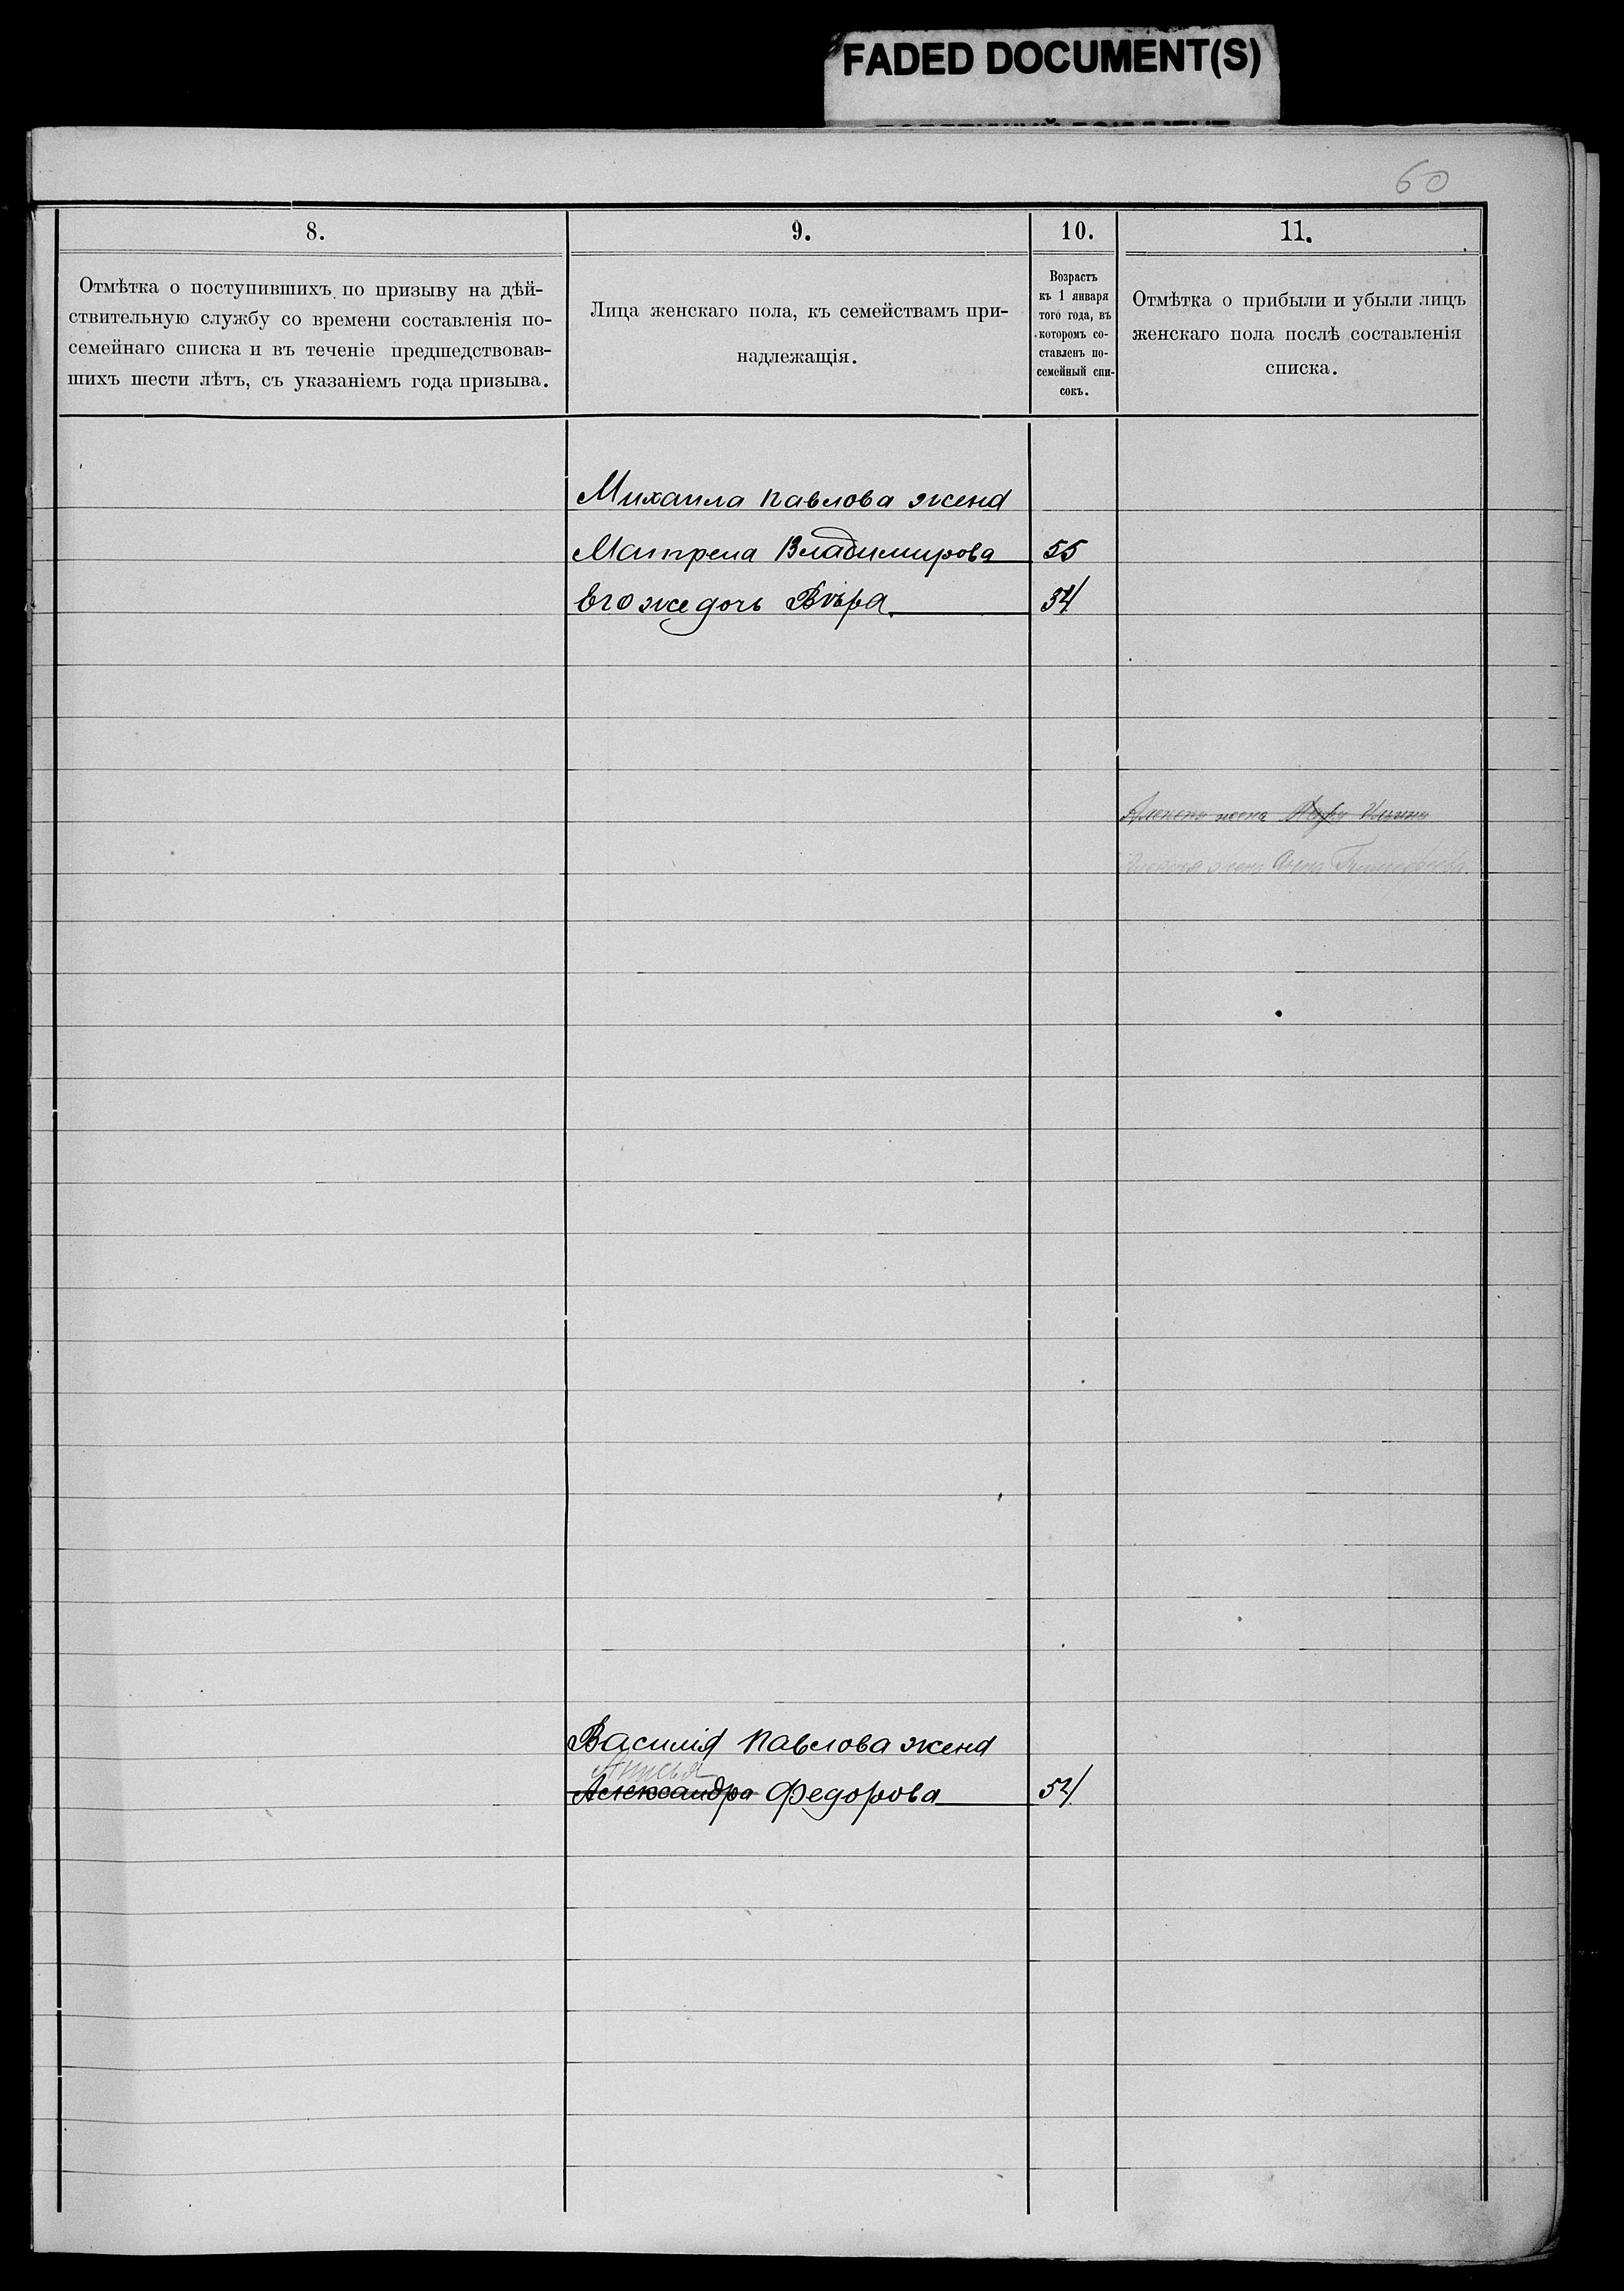 FADED DOCUMENT(S)
60
8.
9.
10.
11.
Отмѣтка о поступившихъ по призыву на дѣй-
ствительную службу со времени составленія по-
семейнаго списка и въ теченіе предшедствовав-
шихъ шести лѣтъ, съ указаніемъ года призыва.
Лица женскаго пола, къ семействамъ при-
надлежащія.
Возрастъ
къ 1 января
того года, въ
которомъ со-
ставленъ по-
семейный спи-
сокъ.
Отмѣтка о прибыли и убыли лицъ
женскаго пола послѣ составленія
списка.
Михаила Павлова жена
Матрена Владимирова 55
Его же дочь Вѣра 34
жена Ильина
жена Анна Тимофеева
Василія Павлова жена
Анисья
Александра Федорова 54